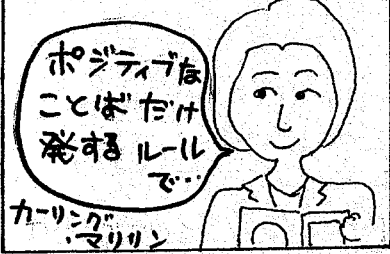 ポジティブな
ことばだけ
発するルール
で…
カーリング
・マリリン